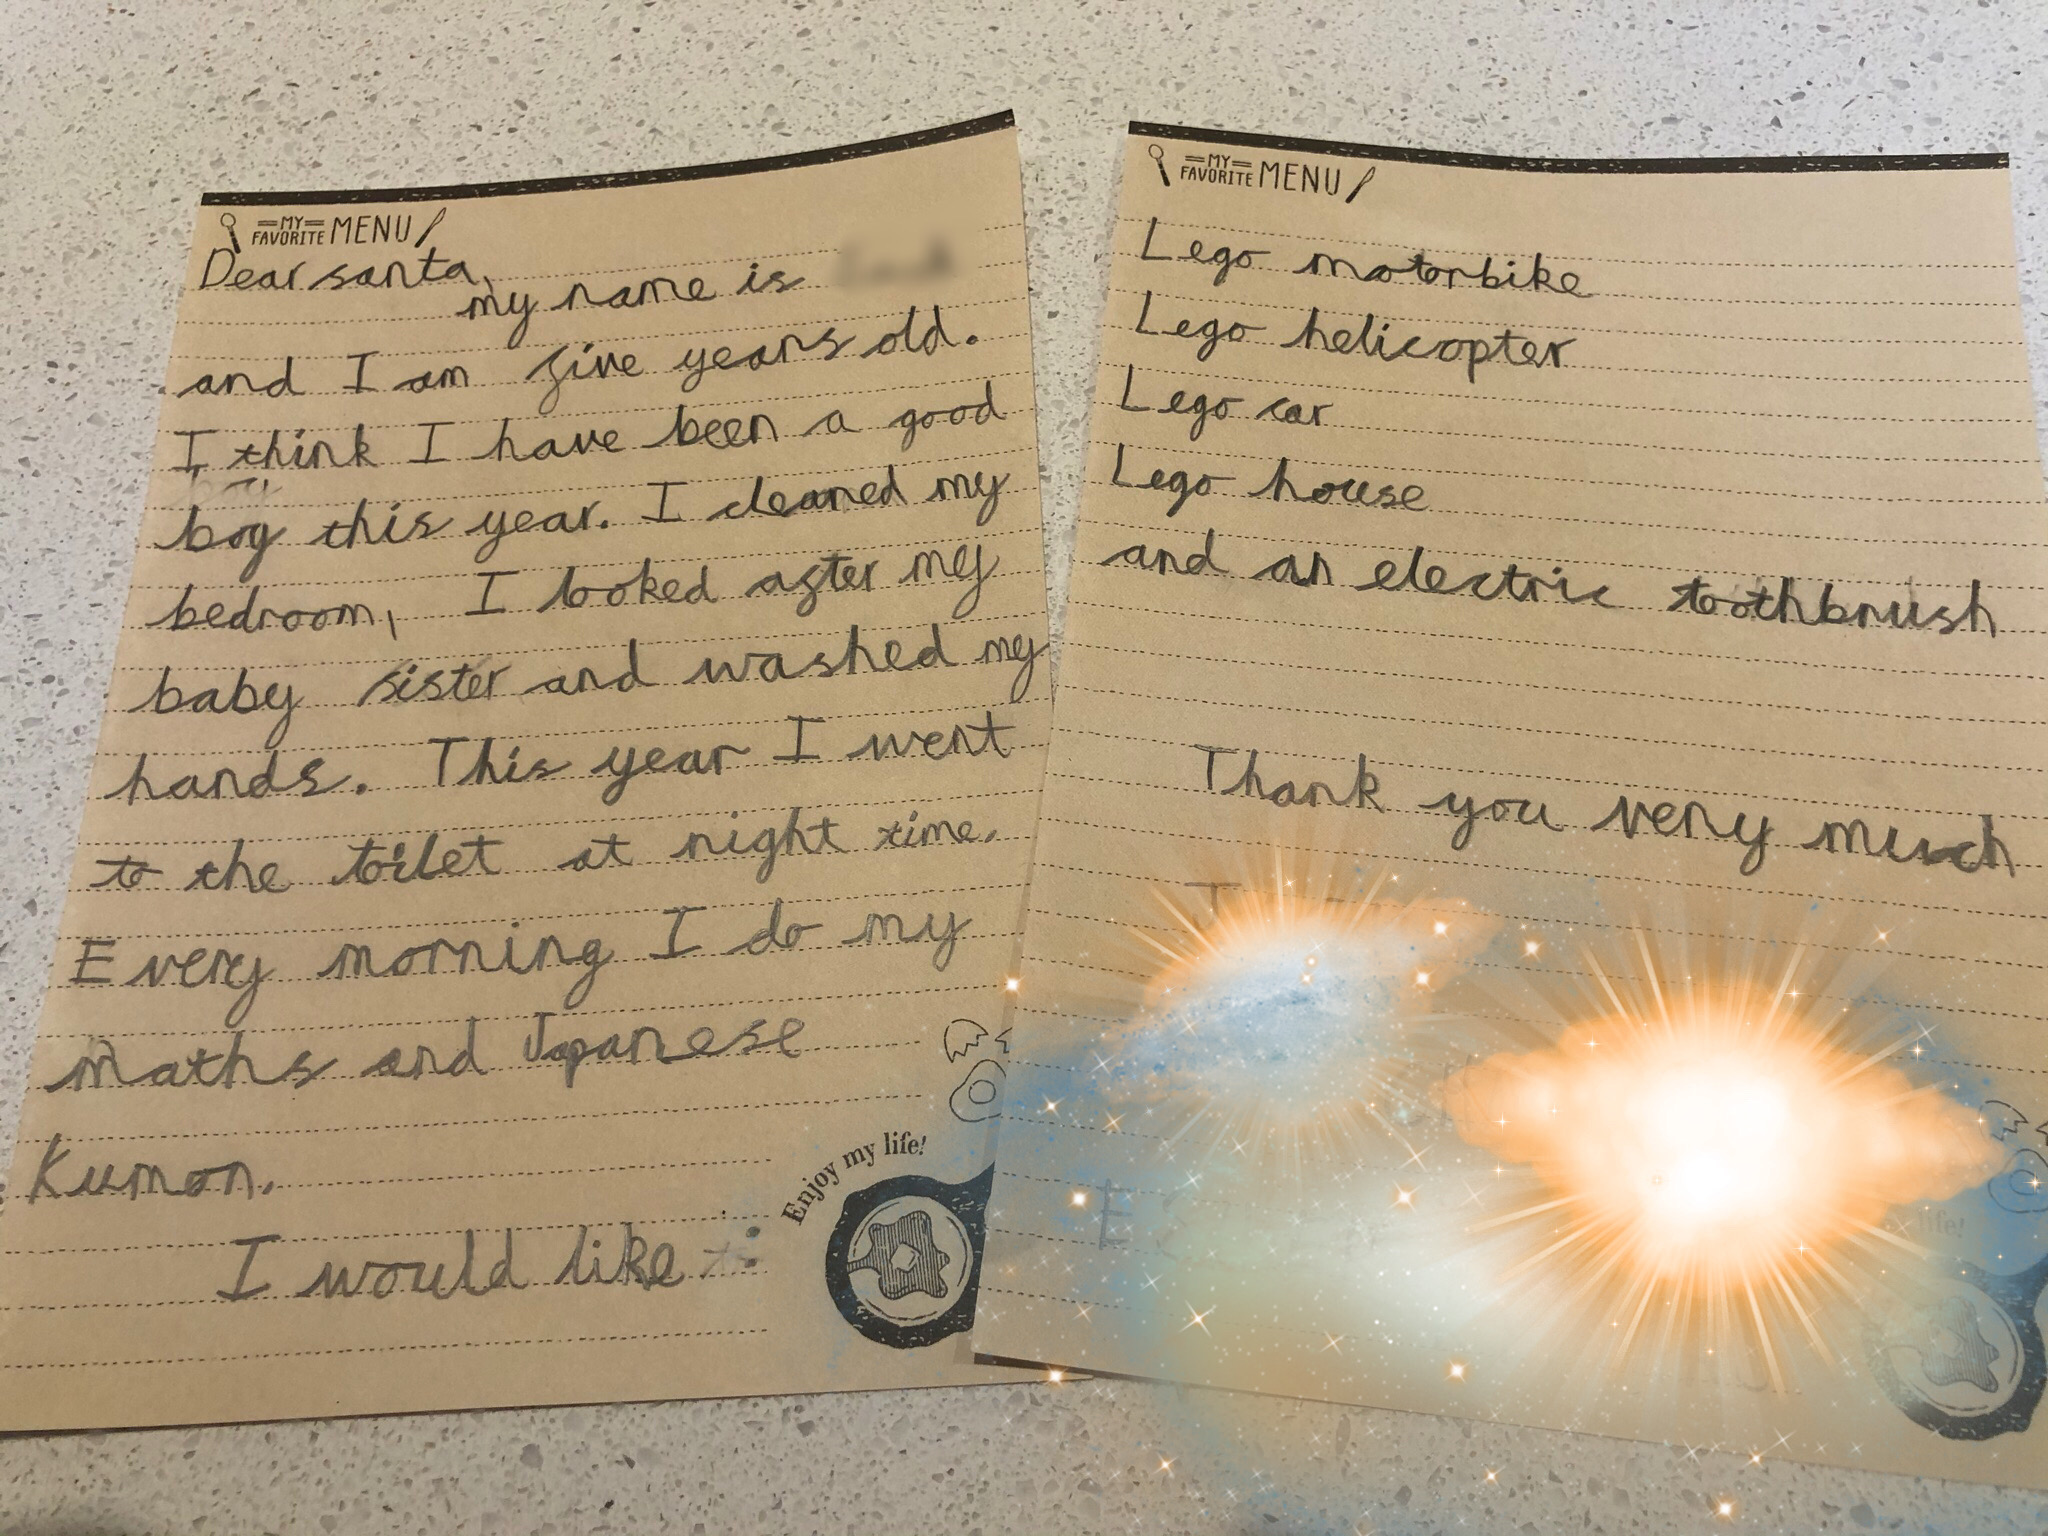 MY FAVORITE MENU
Dear santa,
my name is
and I am five years old.
I think I have been a good
boy this year. I cleaned my
bedroom, I looked after my
baby sister and washed my
hands. This year I went
to the toilet at night time.
Every morning I do my
maths and Japanese
Kumon.
I would like
Enjoy my life!
MY FAVORITE MENU
Lego motorbike
Lego helicopter
Lego car
Lego house
and an electric toothbrush
Thank you very much
life!